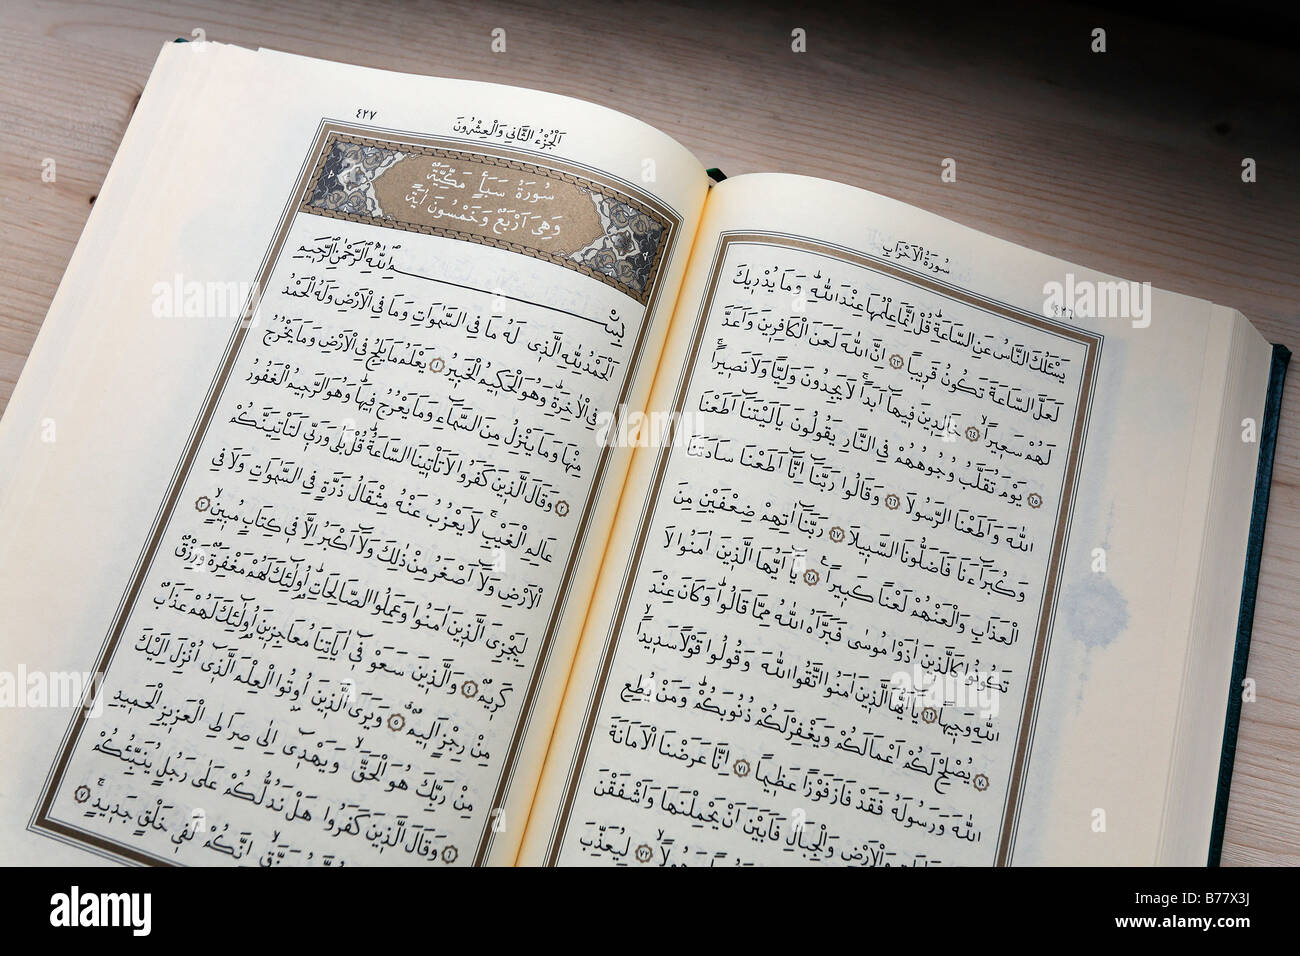 سُورَةُ الْاَحْزَابِ
٤٢٦
يَسْـَٔلُكَ النَّاسُ عَنِ السَّاعَةِۜ قُلْ اِنَّمَا عِلْمُهَا عِنْدَ اللّٰهِۜ وَمَا يُدْر۪يكَ
لَعَلَّ السَّاعَةَ تَكُونُ قَر۪يبًا ﴿٦٣﴾ اِنَّ اللّٰهَ لَعَنَ الْكَافِر۪ينَ وَاَعَدَّ
لَهُمْ سَع۪يرًاۙ ﴿٦٤﴾ خَالِد۪ينَ ف۪يهَٓا اَبَدًاۚ لَا يَجِدُونَ وَلِيًّا وَلَا نَص۪يرًاۚ
﴿٦٥﴾ يَوْمَ تُقَلَّبُ وُجُوهُهُمْ فِي النَّارِ يَقُولُونَ يَا لَيْتَنَٓا اَطَعْنَا
اللّٰهَ وَاَطَعْنَا الرَّسُولَا ﴿٦٦﴾ وَقَالُوا رَبَّنَٓا اِنَّٓا اَطَعْنَا سَادَتَنَا
وَكُبَرَٓاءَنَا فَاَضَلُّونَا السَّب۪يلَا ﴿٦٧﴾ رَبَّنَٓا اٰتِهِمْ ضِعْفَيْنِ مِنَ
الْعَذَابِ وَالْعَنْهُمْ لَعْنًا كَب۪يرًا۟ ﴿٦٨﴾ يَٓا اَيُّهَا الَّذ۪ينَ اٰمَنُوا لَا
تَكُونُوا كَالَّذ۪ينَ اٰذَوْا مُوسٰى فَبَرَّاَهُ اللّٰهُ مِمَّا قَالُواۜ وَكَانَ عِنْدَ
اللّٰهِ وَج۪يهًا ﴿٦٩﴾ يَٓا اَيُّهَا الَّذ۪ينَ اٰمَنُوا اتَّقُوا اللّٰهَ وَقُولُوا قَوْلًا سَد۪يدًاۙ
﴿٧٠﴾ يُصْلِحْ لَكُمْ اَعْمَالَكُمْ وَيَغْفِرْ لَكُمْ ذُنُوبَكُمْۜ وَمَنْ يُطِعِ
اللّٰهَ وَرَسُولَهُ فَقَدْ فَازَ فَوْزًا عَظ۪يمًا ﴿٧١﴾ اِنَّا عَرَضْنَا الْاَمَانَةَ
وَالْاَرْضِ وَالْجِبَالِ فَاَبَيْنَ اَنْ يَحْمِلْنَهَا وَاَشْفَقْنَ
﴿٧٢﴾ لِيُعَذِّبَ
اَلْجُزْءُ الثَّانِي وَالْعِشْرُونَ
٤٢٧
سُورَةُ سَبَأٍ مَكِّيَّةٌ
وَهِيَ اَرْبَعٌ وَخَمْسُونَ اٰيَةً
بِسْمِ اللّٰهِ الرَّحْمٰنِ الرَّح۪يمِ
اَلْحَمْدُ لِلّٰهِ الَّذ۪ي لَهُ مَا فِي السَّمٰوَاتِ وَمَا فِي الْاَرْضِ وَلَهُ الْحَمْدُ
فِي الْاٰخِرَةِۜ وَهُوَ الْحَك۪يمُ الْخَب۪يرُ ﴿١﴾ يَعْلَمُ مَا يَلِجُ فِي الْاَرْضِ وَمَا يَخْرُجُ
مِنْهَا وَمَا يَنْزِلُ مِنَ السَّمَٓاءِ وَمَا يَعْرُجُ ف۪يهَاۜ وَهُوَ الرَّح۪يمُ الْغَفُورُ
﴿٢﴾ وَقَالَ الَّذ۪ينَ كَفَرُوا لَا تَأْت۪ينَا السَّاعَةُۜ قُلْ بَلٰى وَرَبّ۪ي لَتَأْتِيَنَّكُمْۙ
عَالِمِ الْغَيْبِۚ لَا يَعْزُبُ عَنْهُ مِثْقَالُ ذَرَّةٍ فِي السَّمٰوَاتِ وَلَا فِي
الْاَرْضِ وَلَٓا اَصْغَرُ مِنْ ذٰلِكَ وَلَٓا اَكْبَرُ اِلَّا ف۪ي كِتَابٍ مُب۪ينٍۙ ﴿٣﴾
لِيَجْزِيَ الَّذ۪ينَ اٰمَنُوا وَعَمِلُوا الصَّالِحَاتِۜ اُو۬لٰٓئِكَ لَهُمْ مَغْفِرَةٌ وَرِزْقٌ
كَر۪يمٌ ﴿٤﴾ وَالَّذ۪ينَ سَعَوْ ف۪ٓي اٰيَاتِنَا مُعَاجِز۪ينَ اُو۬لٰٓئِكَ لَهُمْ عَذَابٌ
مِنْ رِجْزٍ اَل۪يمٌ ﴿٥﴾ وَيَرَى الَّذ۪ينَ اُو۫تُوا الْعِلْمَ الَّذ۪ٓي اُنْزِلَ اِلَيْكَ
مِنْ رَبِّكَ هُوَ الْحَقَّۙ وَيَهْد۪ٓي اِلٰى صِرَاطِ الْعَز۪يزِ الْحَم۪يدِ
﴿٦﴾ وَقَالَ الَّذ۪ينَ كَفَرُوا هَلْ نَدُلُّكُمْ عَلٰى رَجُلٍ يُنَبِّئُكُمْ
اِنَّكُمْ لَف۪ي خَلْقٍ جَد۪يدٍۚ ﴿٧﴾
alamy
Image ID: B77X3J
www.alamy.com